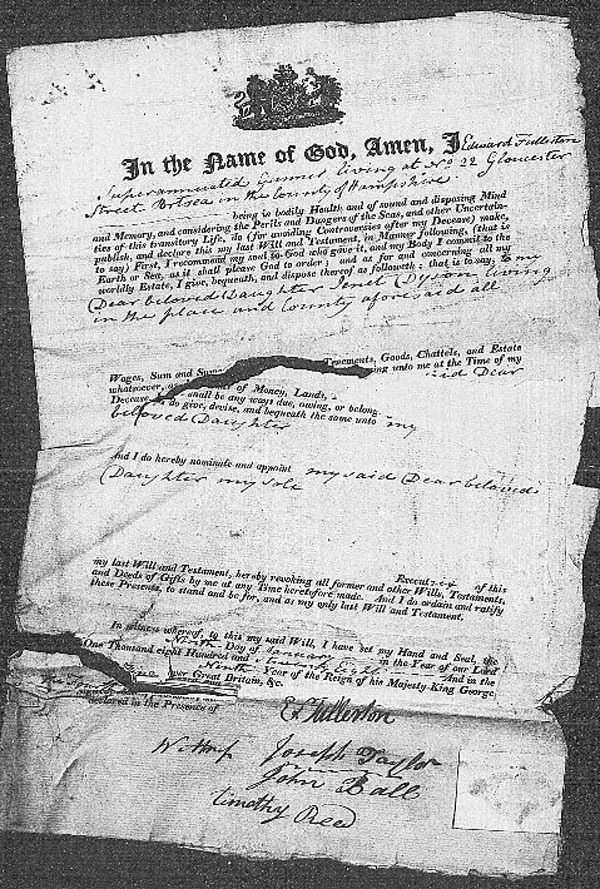 In the Name of God, Amen, I Edward Fullerton
Superannuated Gunner living at No 22 Gloucester
Street Portsea in the County of Hampshire.
being in bodily Health and of sound and disposing Mind
and Memory, and considering the Perils and Dangers of the Seas, and other Uncertain-
ties of this transitory Life, do (for avoiding Controversies after my Decease) make,
publish, and declare this my last Will and Testament, in Manner following, (that is
to say) First, I recommend my soul to God who gave it, and my Body I commit to the
Earth or Sea, as it shall please God to order; and as for and concerning all my
worldly Estate, I give, bequeath, and dispose thereof as followeth: that is to say; to my
Dear beloved Daughter Jenet Dyson living
in the place and County aforesaid all
Wages, Sum and Sums of Money, Lands, Tenements, Goods, Chattels, and Estate
whatsoever, as shall be any ways due, owing, or belong-ing unto me at the Time of my
Decease, I do give, devise, and bequeath the same unto my said Dear
beloved Daughter
And I do hereby nominate and appoint my said Dear beloved
Daughter my sole
Execut of this
my last Will and Testament, hereby revoking all former and other Wills, Testaments,
and Deeds of Gifts by me at any Time heretofore made. And I do ordain and ratify
these Presents, to stand and be for, and as my only last Will and Testament.
In witness whereof, to this my said Will, I have set my Hand and Seal, the
Ninth Day of January in the Year of our Lord
One Thousand eight Hundred and Eight And in the
Ninth Year of the Reign of his Majesty King George
over Great Britain, &c.
declared in the Presence of
E Fullerton
Witness Joseph Taylor
John Ball
Timothy Reed